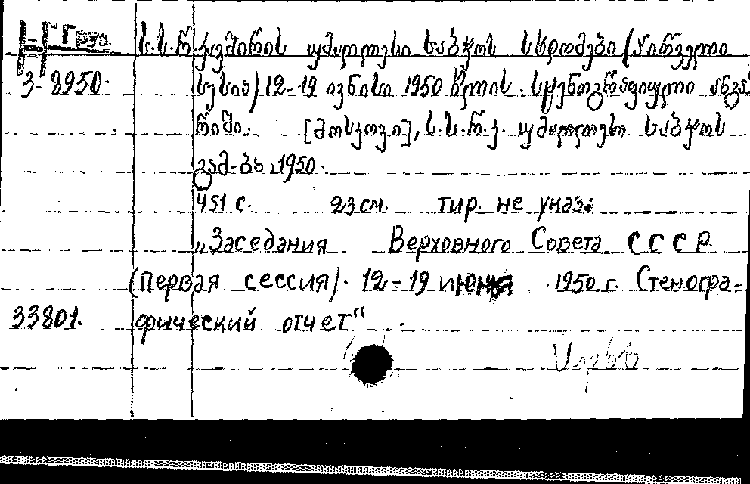 Груз.
3-8950.
ს.ს.რ. კავშირის უმაღლესი საბჭოს სხდომები (პირველი
სესია) 12-19 ივნისი 1950 წლის. სტენოგრაფიული ანგა
რიში. [მოსკოვი], ს.ს.რ.კ. უმაღლესი საბჭოს
გამ-ბა, 1950.
451 с. 23 см. тир. не указ.
„Заседания Верховного Совета СССР
(первая сессия). 12-19 июня 1950 г. Стеногра-
33801. фический отчет“